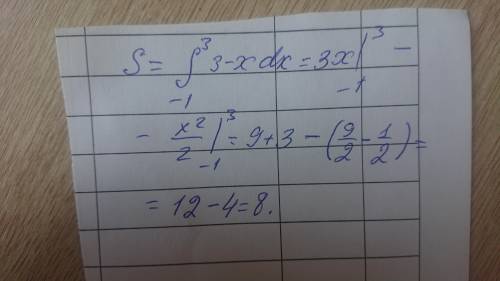 S = ∫₋₁³ 3-x dx = 3x|₋₁³ -
- x²/2|₋₁³ = 9+3 - (9/2 - 1/2) =
= 12-4=8.